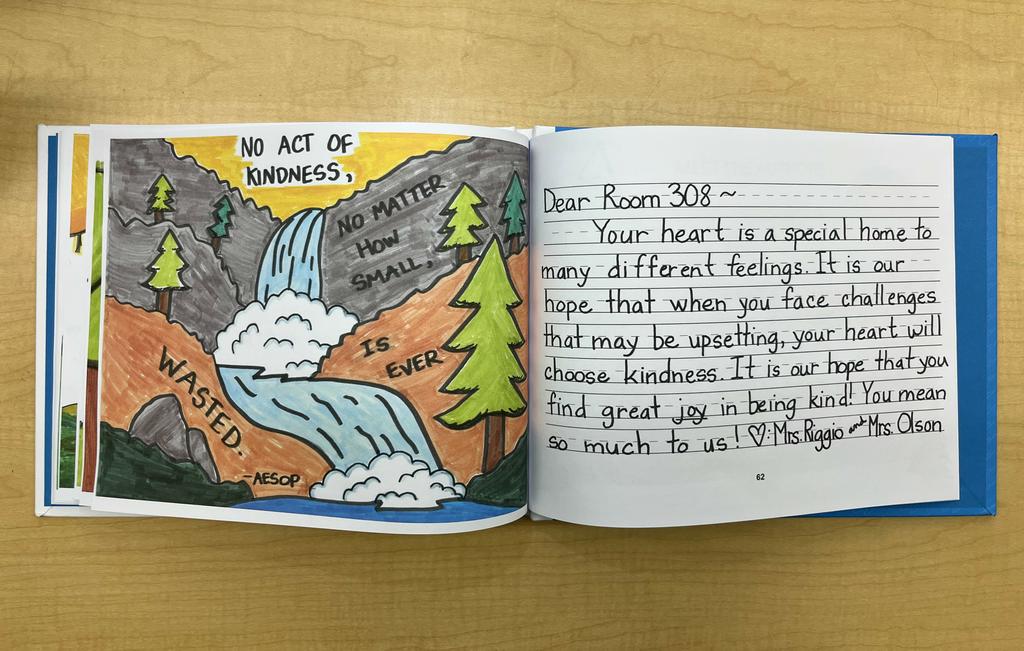 NO ACT OF
KINDNESS,
NO MATTER
HOW
SMALL,
IS
EVER
WASTED.
-AESOP
Dear Room 308 ~
Your heart is a special home to
many different feelings. It is our
hope that when you face challenges
that may be upsetting, your heart will
choose kindness. It is our hope that you
find great joy in being kind! You mean
so much to us! ♡: Mrs. Riggio and Mrs. Olson
62